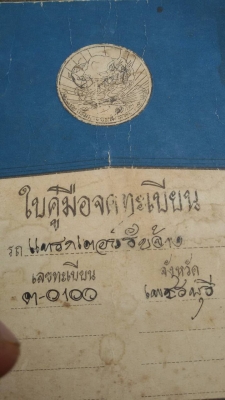 ใบคู่มือจดทะเบียน
รถ แทรกเตอร์รับจ้าง
เลขทะเบียน จังหวัด
ต-0100 เพชรบุรี